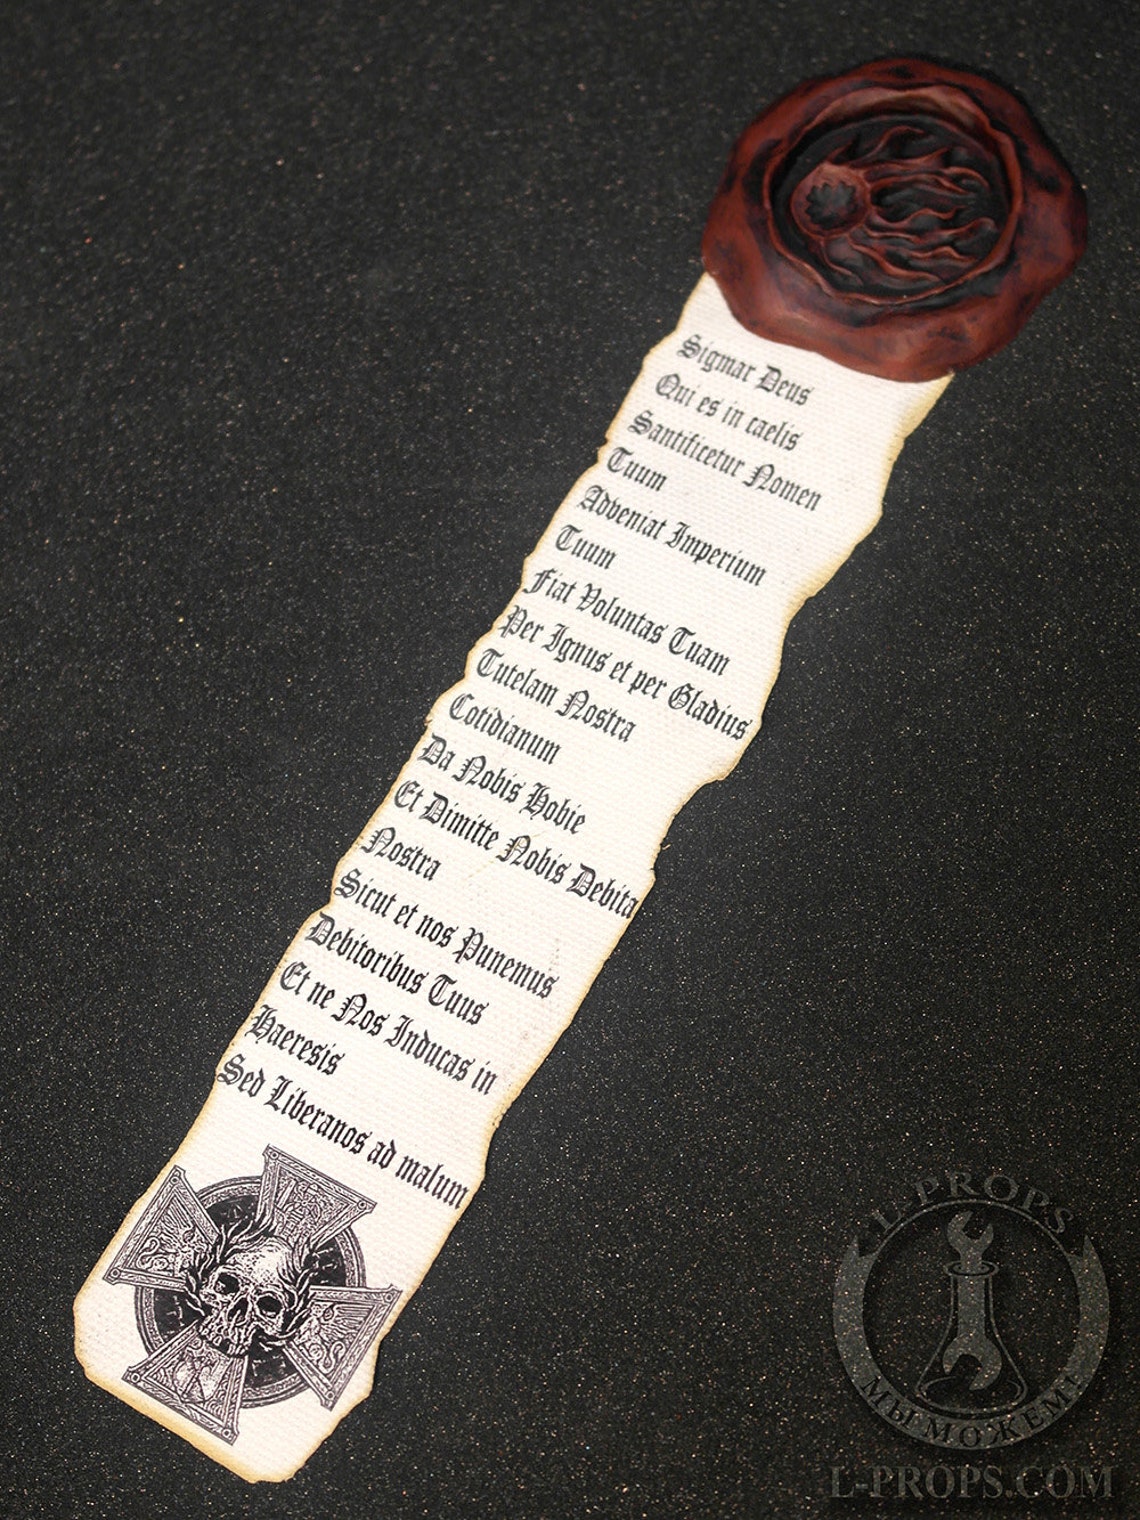 Sigmar Deus
Qui es in caelis
Santificetur Nomen
Tuum
Adveniat Imperium
Tuum
Fiat Voluntas Tuam
Per Ignus et per Gladius
Tutelam Nostra
Cotidianum
Da Nobis Hobie
Et Dimitte Nobis Debita
Nostra
Sicut et nos Punemus
Debitoribus Tuus
Et ne Nos Inducas in
Haeresis
Sed Liberanos ad malum
L-PROPS
МЫ МОЖЕМ!
L-PROPS.COM